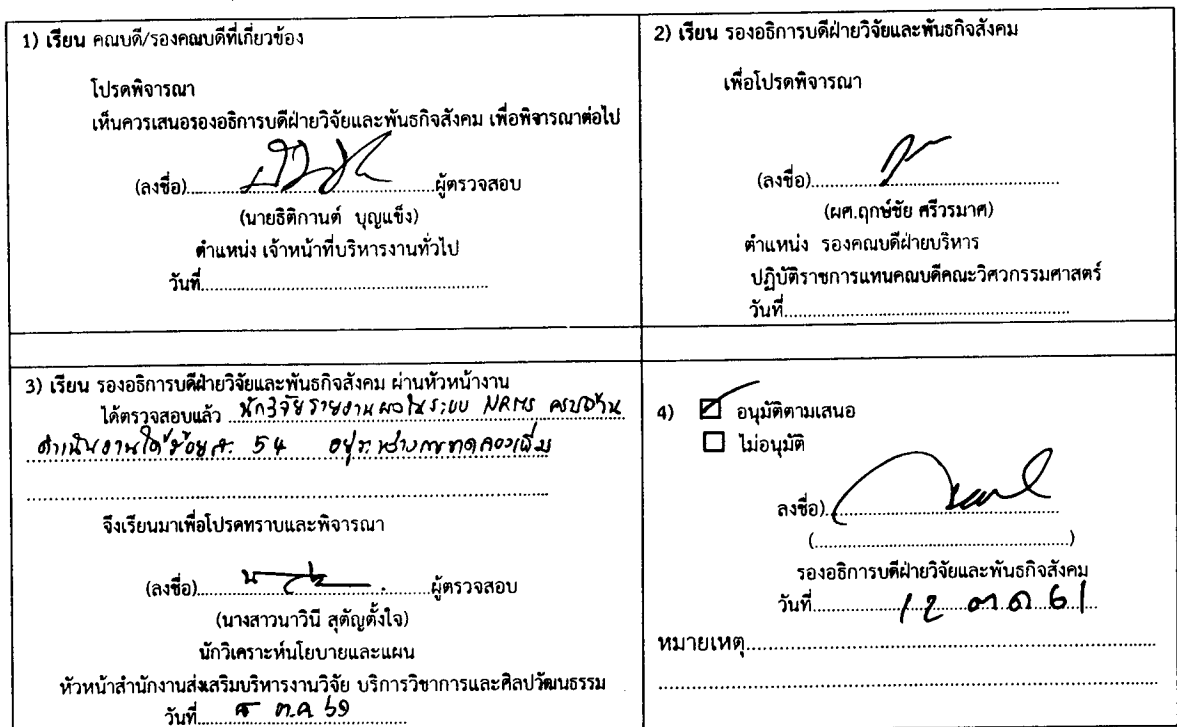 1) เรียน คณบดี/รองคณบดีที่เกี่ยวข้อง
โปรดพิจารณา
เห็นควรเสนอรองอธิการบดีฝ่ายวิจัยและพันธกิจสังคม เพื่อพิจารณาต่อไป
(ลงชื่อ)....................ผู้ตรวจสอบ
(นายธิติกานต์ บุญแข็ง)
ตำแหน่ง เจ้าหน้าที่บริหารงานทั่วไป
วันที่....................
2) เรียน รองอธิการบดีฝ่ายวิจัยและพันธกิจสังคม
เพื่อโปรดพิจารณา
(ลงชื่อ)....................
(ผศ.ฤกษ์ชัย ศรีวรมาศ)
ตำแหน่ง รองคณบดีฝ่ายบริหาร
ปฏิบัติราชการแทนคณบดีคณะวิศวกรรมศาสตร์
วันที่....................
3) เรียน รองอธิการบดีฝ่ายวิจัยและพันธกิจสังคม ผ่านหัวหน้างาน
ได้ตรวจสอบแล้ว นักวิจัยรายงานผลในระบบ NRMS ครบถ้วน
ดำเนินงานได้ร้อยละ 54 อยู่ระหว่างการทดลองเพิ่ม
จึงเรียนมาเพื่อโปรดทราบและพิจารณา
(ลงชื่อ)....................ผู้ตรวจสอบ
(นางสาวนาวินี สุตัญตั้งใจ)
นักวิเคราะห์นโยบายและแผน
หัวหน้าสำนักงานส่งเสริมบริหารงานวิจัย บริการวิชาการและศิลปวัฒนธรรม
วันที่ ต.ค
4) อนุมัติตามเสนอ
ไม่อนุมัติ
ลงชื่อ)....................
(....................)
รองอธิการบดีฝ่ายวิจัยและพันธกิจสังคม
วันที่ 12 ตค 61
หมายเหตุ....................